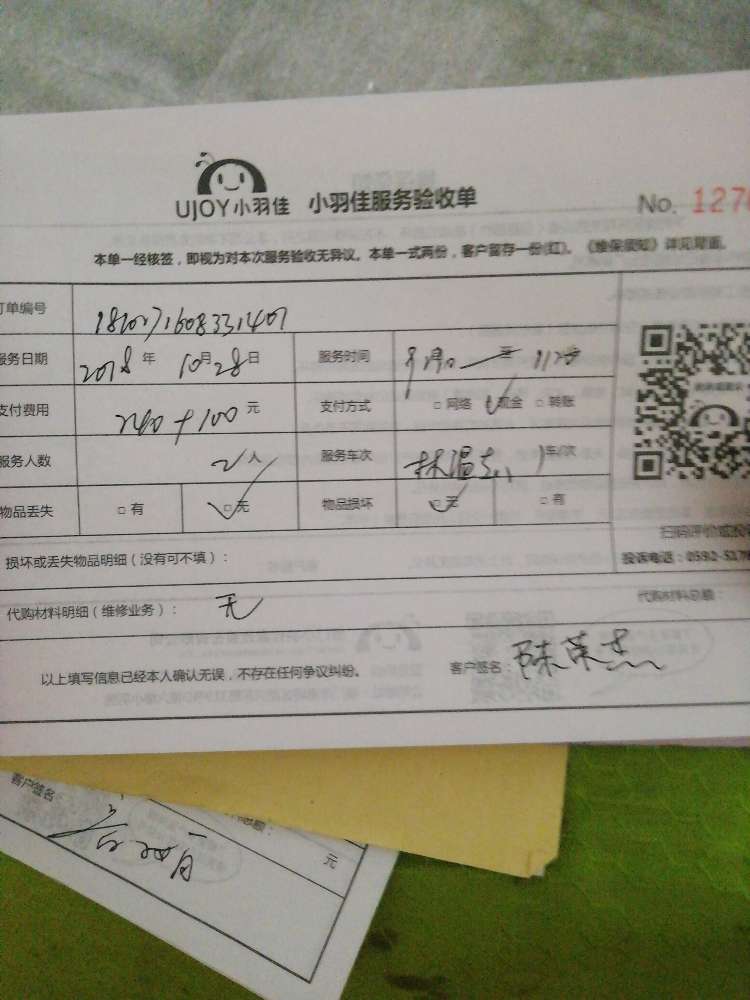 UJOY小羽佳 小羽佳服务验收单 No. 127
本单一经核签，即视为对本次服务验收无异议。本单一式两份，客户留存一份(红)。《维保须知》详见背面。
订单编号
服务日期 2018年 10月28日 服务时间 至
支付费用 240+100元 支付方式 □网络 现金 □转账
服务人数 2人 服务车次 车/次
物品丢失 □有 □无 物品损坏 □无 □有
损坏或丢失物品明细（没有可不填）：
扫码评价或投
投诉电话：0592-517
代购材料明细（维修业务）： 无 代购材料总额：
以上填写信息已经本人确认无误，不存在任何争议纠纷。 客户签名：陈荣杰
客户签名：
总额：
元